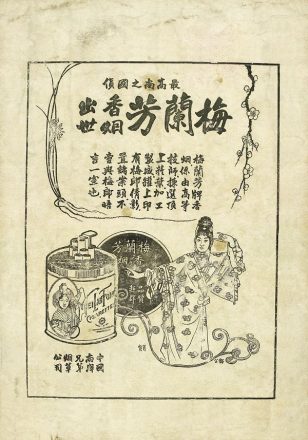 最高尚之國貨
梅蘭芳
香烟
出世
梅蘭芳牌香
烟係由高等
技師揀選頂
上菸葉加工
製成罐上印
有梅郎倩影
置諸案頭不
啻與梅郎晤
言一室也
芳蘭梅
MEI LAN FONG
CIGARETTE
中國
南洋
兄弟
烟草
公司